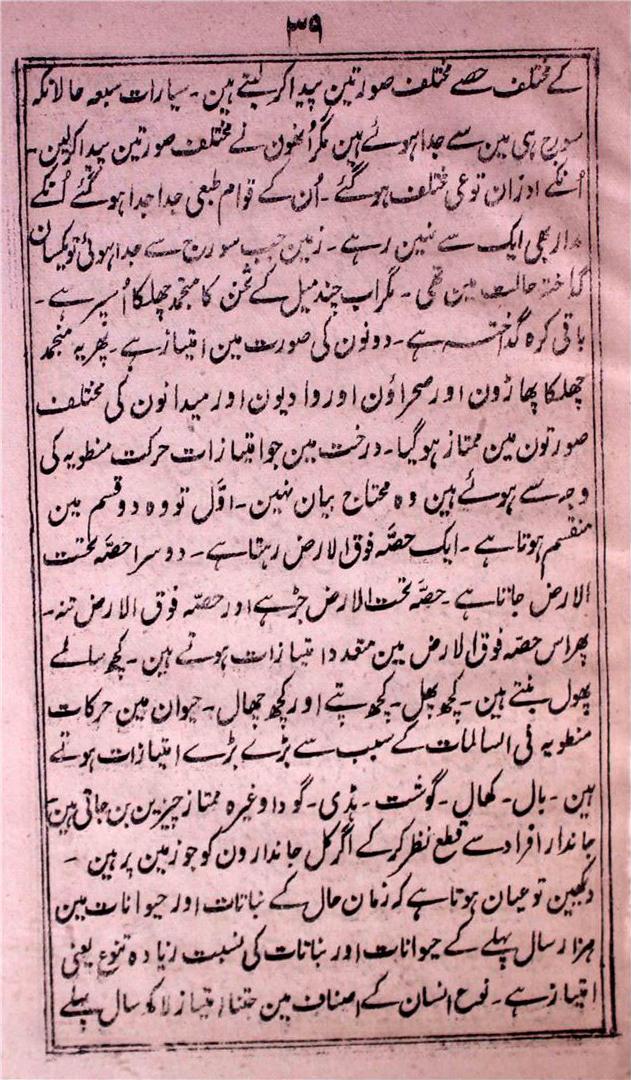 ۳۹
کے مختلف حصے مختلف صورتین پیدا کر لیتے ہین ۔ سیارات سبعہ حالانکہ
سورج ہی مین سے جدا ہوئے ہین مگر اُنھون نے مختلف صورتین پیدا کرلین ۔
اُنکے اوزان نوعی مختلف ہو گئے ۔ اُن کے قوام طبعی جدا جدا ہو گئے اُنکے
مدار بھی ایک سے نہین رہے ۔ زمین جب سورج سے جدا ہوئی تو یکسان
گداختہ حالت مین تھی ۔ مگر اب چند میل کے ثخن کا منجمد چھلکا اُسپر ہے ۔
باقی کرہ گداختہ ہے ۔ دونون کی صورت مین امتیاز ہے ۔ پھر یہ منجمد
چھلکا پہاڑون اور صحراؤن اور وادیون اور میدانون کی مختلف
صورتون مین ممتاز ہو گیا ۔ درخت مین جو امتیازات حرکت منطویہ کی
وجہ سے ہوئے ہین وہ محتاج بیان نہین ۔ اوّل تو وہ دو قسم مین
منقسم ہوتا ہے ۔ ایک حصّہ فوق الارض رہتا ہے ۔ دوسرا حصّہ تحت
الارض جاتا ہے ۔ حصّہ تحت الارض جڑ ہے اور حصّہ فوق الارض تنہ ۔
پھر اس حصّہ فوق الارض مین متعدد امتیازات ہوتے ہین ۔ کچھ سالمے
پھول بنتے ہین ۔ کچھ پھل ۔ کچھ پتے اور کچھ چھال ۔ حیوان مین حرکات
منطویہ فی السالمات کے سبب سے بڑے بڑے امتیازات ہوتے
ہین ۔ بال ۔ کھال ۔ گوشت ۔ ہڈی ۔ گودا وغیرہ ممتاز چیزین بن جاتی ہین
جاندار افراد سے قطع نظر کر کے اگر کل جاندارون کو جو زمین پر ہین ۔
دیکھین تو عیان ہوتا ہے کہ زمان حال کے نباتات اور حیوانات مین
ہزار سال پہلے کے حیوانات اور نباتات کی نسبت زیادہ تنوع یعنی
امتیاز ہے ۔ نوع انسان کے اصناف مین جتنا امتیاز لاکھ سال پہلے